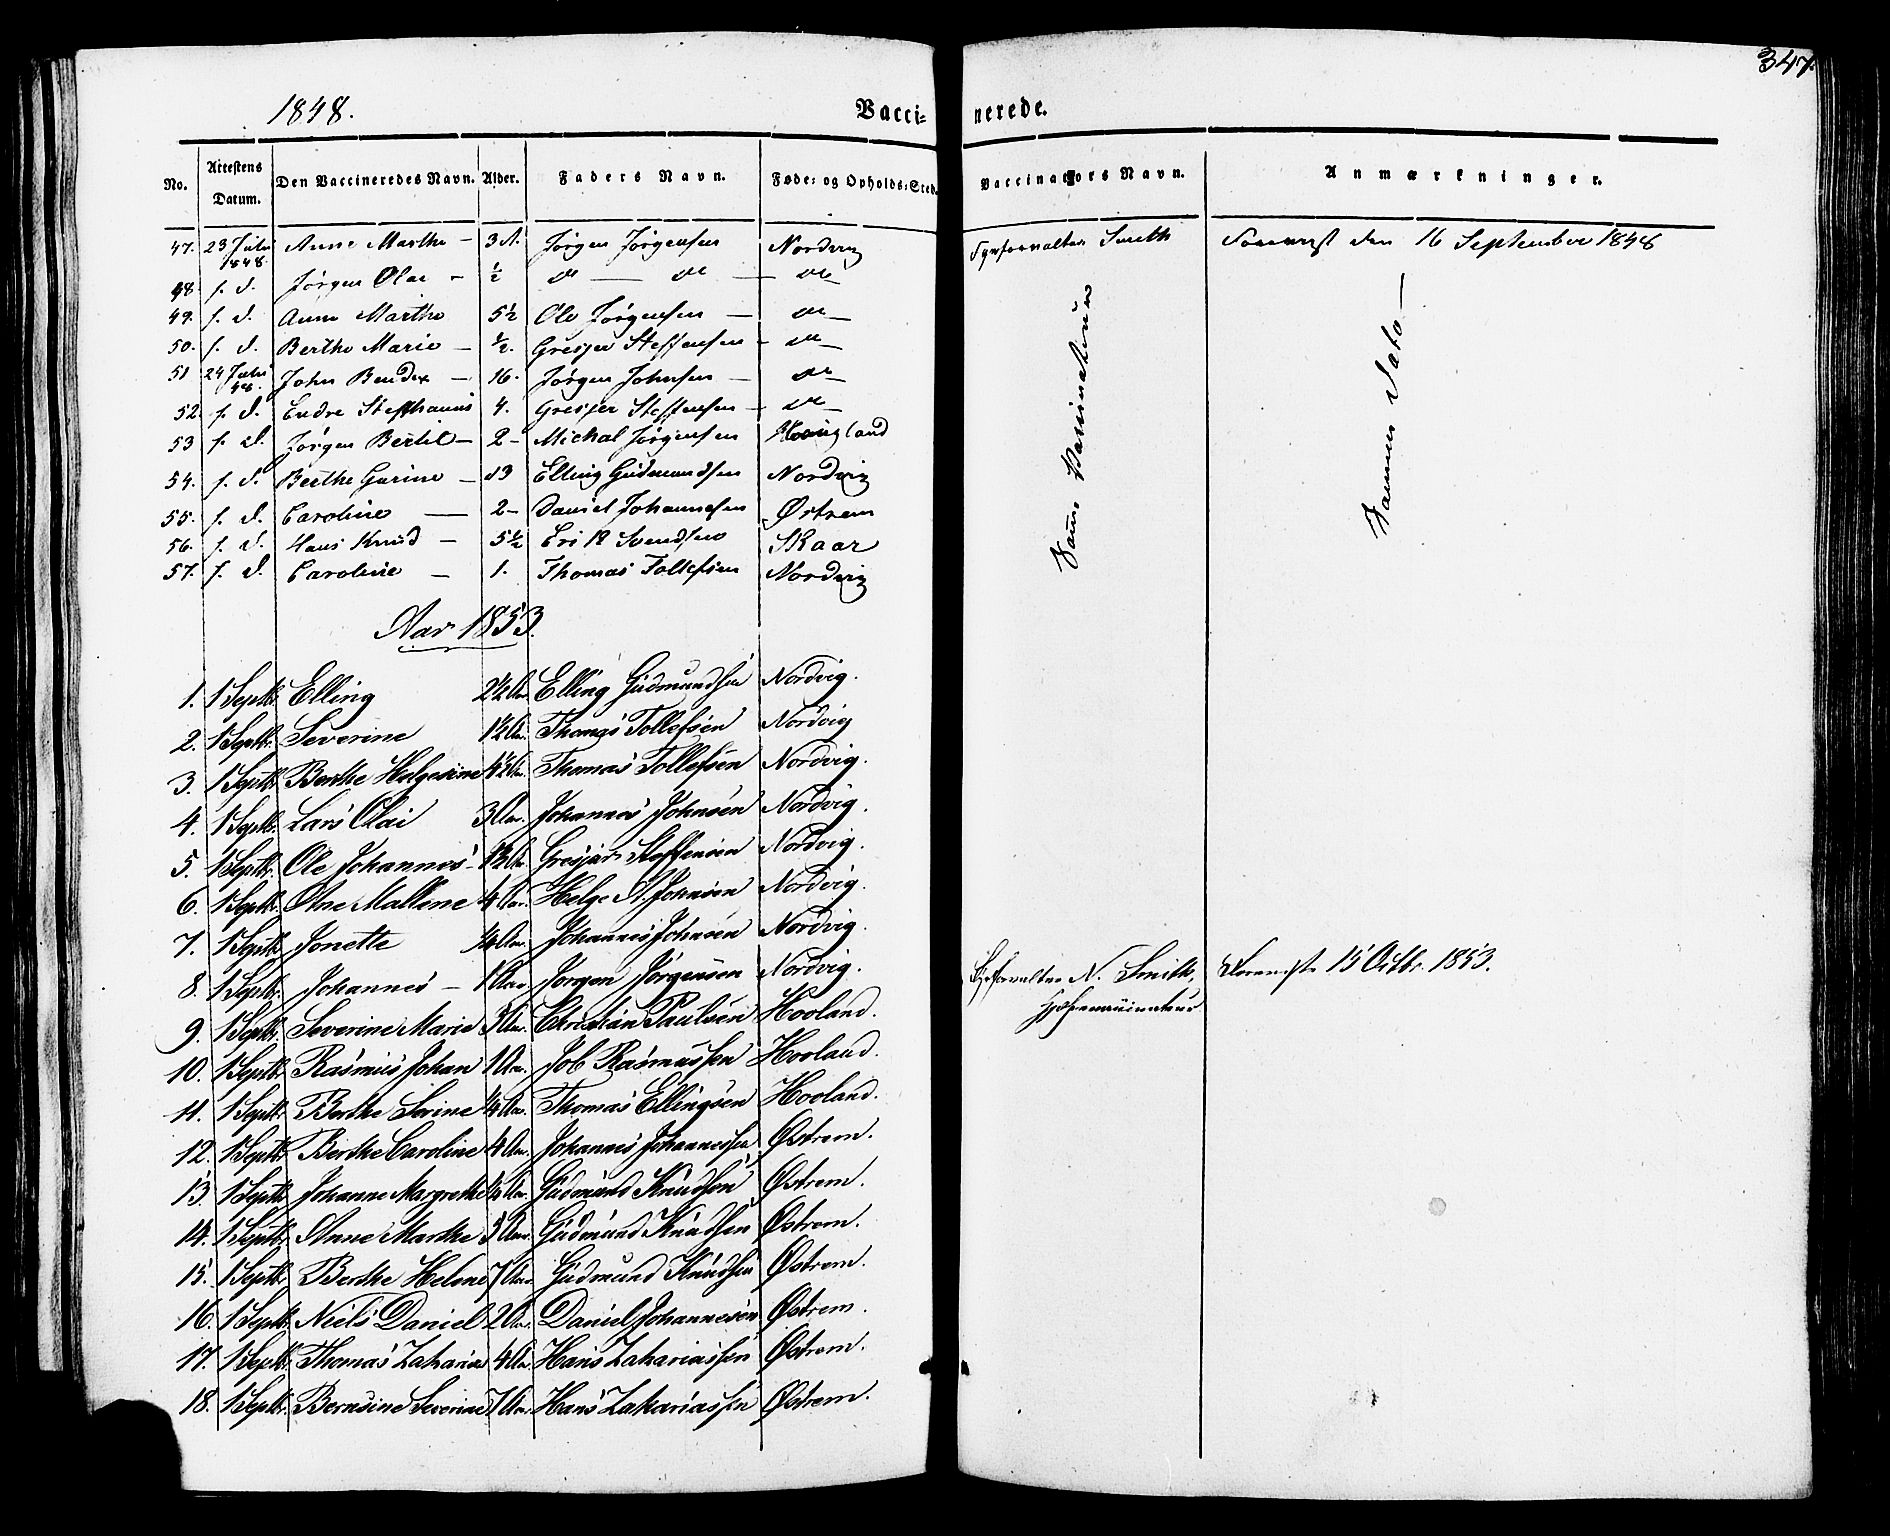 347.
1848.
Vacci- nerede.
No. Attestens Datum. Den Vaccineredes Navn. Alder. Faders Navn. Føde- og Opholds-Sted. Vaccinateurs Navn. Anmærkninger.
47. 23 Juli 1848. Anne Marthe - 3 A. Jørgen Jørgensen Nordvig Smith den 16 September 1848
48. f. d. Jørgen Olai - ½ do — do — do —
49. f. d. Anne Marthe 5½ Ole Jørgensen — do —
50. f. d. Berthe Marie — ½. Gresjer Steffensen - do —
51 24 Juli 48. John Bendix — 16. Jørgen Johnsen — do —
52. f. d. Endre Stephanus 4. Gresjer Steffensen — do —
53 f. d. Jørgen Bertil — 2 - Michal Jørgensen
54. f. d. Berthe Gurine — 13 Elling Gudmundsen Nordvig
55. f. d. Caroline — 2 - Daniel Johannesen Østrem
56. f. d. Hans Knud - 5½ Erik Svendsen Skaar
57. f. d. Caroline — 1. Thomas Tollefsen Nordvig
Samme Vaccinateur
Samme Dato —
Aar 1853.
1. 1 Septbr. Elling 2½ Aar. Elling Gudmundsen Nordvig.
2. 1 Septbr. Severine 1½ Aar. Thomas Tollefsen Nordvig
3. 1 Septbr. Berthe Helgesine 4½ Aar. Thomas Tollefsen Nordvig.
4. 1 Septbr. Lars Olai 3 Aar. Johannes Johnsen Nordvig.
5. 1 Septbr. Ole Johannes - Aar. Gresjer Steffensen Nordvig.
6. 1 Septbr. Olne Mallene 4 Aar. Helge St. Johnsen Nordvig.
7. 1 Septbr. Jonette ¼ Aar. Johannes Johnsen Nordvig.
8. 1 Septbr. Johannes — 1 Aar Jørgen Jørgensen Nordvig. N. Smith, 15 Octbr. 1853.
9. 1 Septbr. Severine Marie 3 Aar. Christian Paulsen Hooland.
10. 1 Septbr. Rasmus Johan 1 Aar. Job Rasmussen Hooland.
11. 1 Septbr. Berthe Serine ¼ Aar. Thomas Ellingsen Hooland.
12. 1 Septbr. Berthe Caroline 4 Aar. Johannes Johannessen Østrem.
13. 1 Septbr. Johanne Margrethe ½ Aar. Gudmund Knudsen Østrem.
14. 1 Septbr. Anne Marthe 3 Aar. Gudmund Knudsen Østrem.
15. 1 Septbr. Berthe Helene 7 Aar. Gudmund Knudsen Østrem.
16. 1 Septbr. Niels Daniel 2 Aar. Daniel Johannesen Østrem.
17. 1 Septbr. Thomas Zakarias 4 Aar. Hans Zakariassen Østrem.
18. 1 Septbr. Bernsine Severine 7 Aar. Hans Zakariassen Østrem.